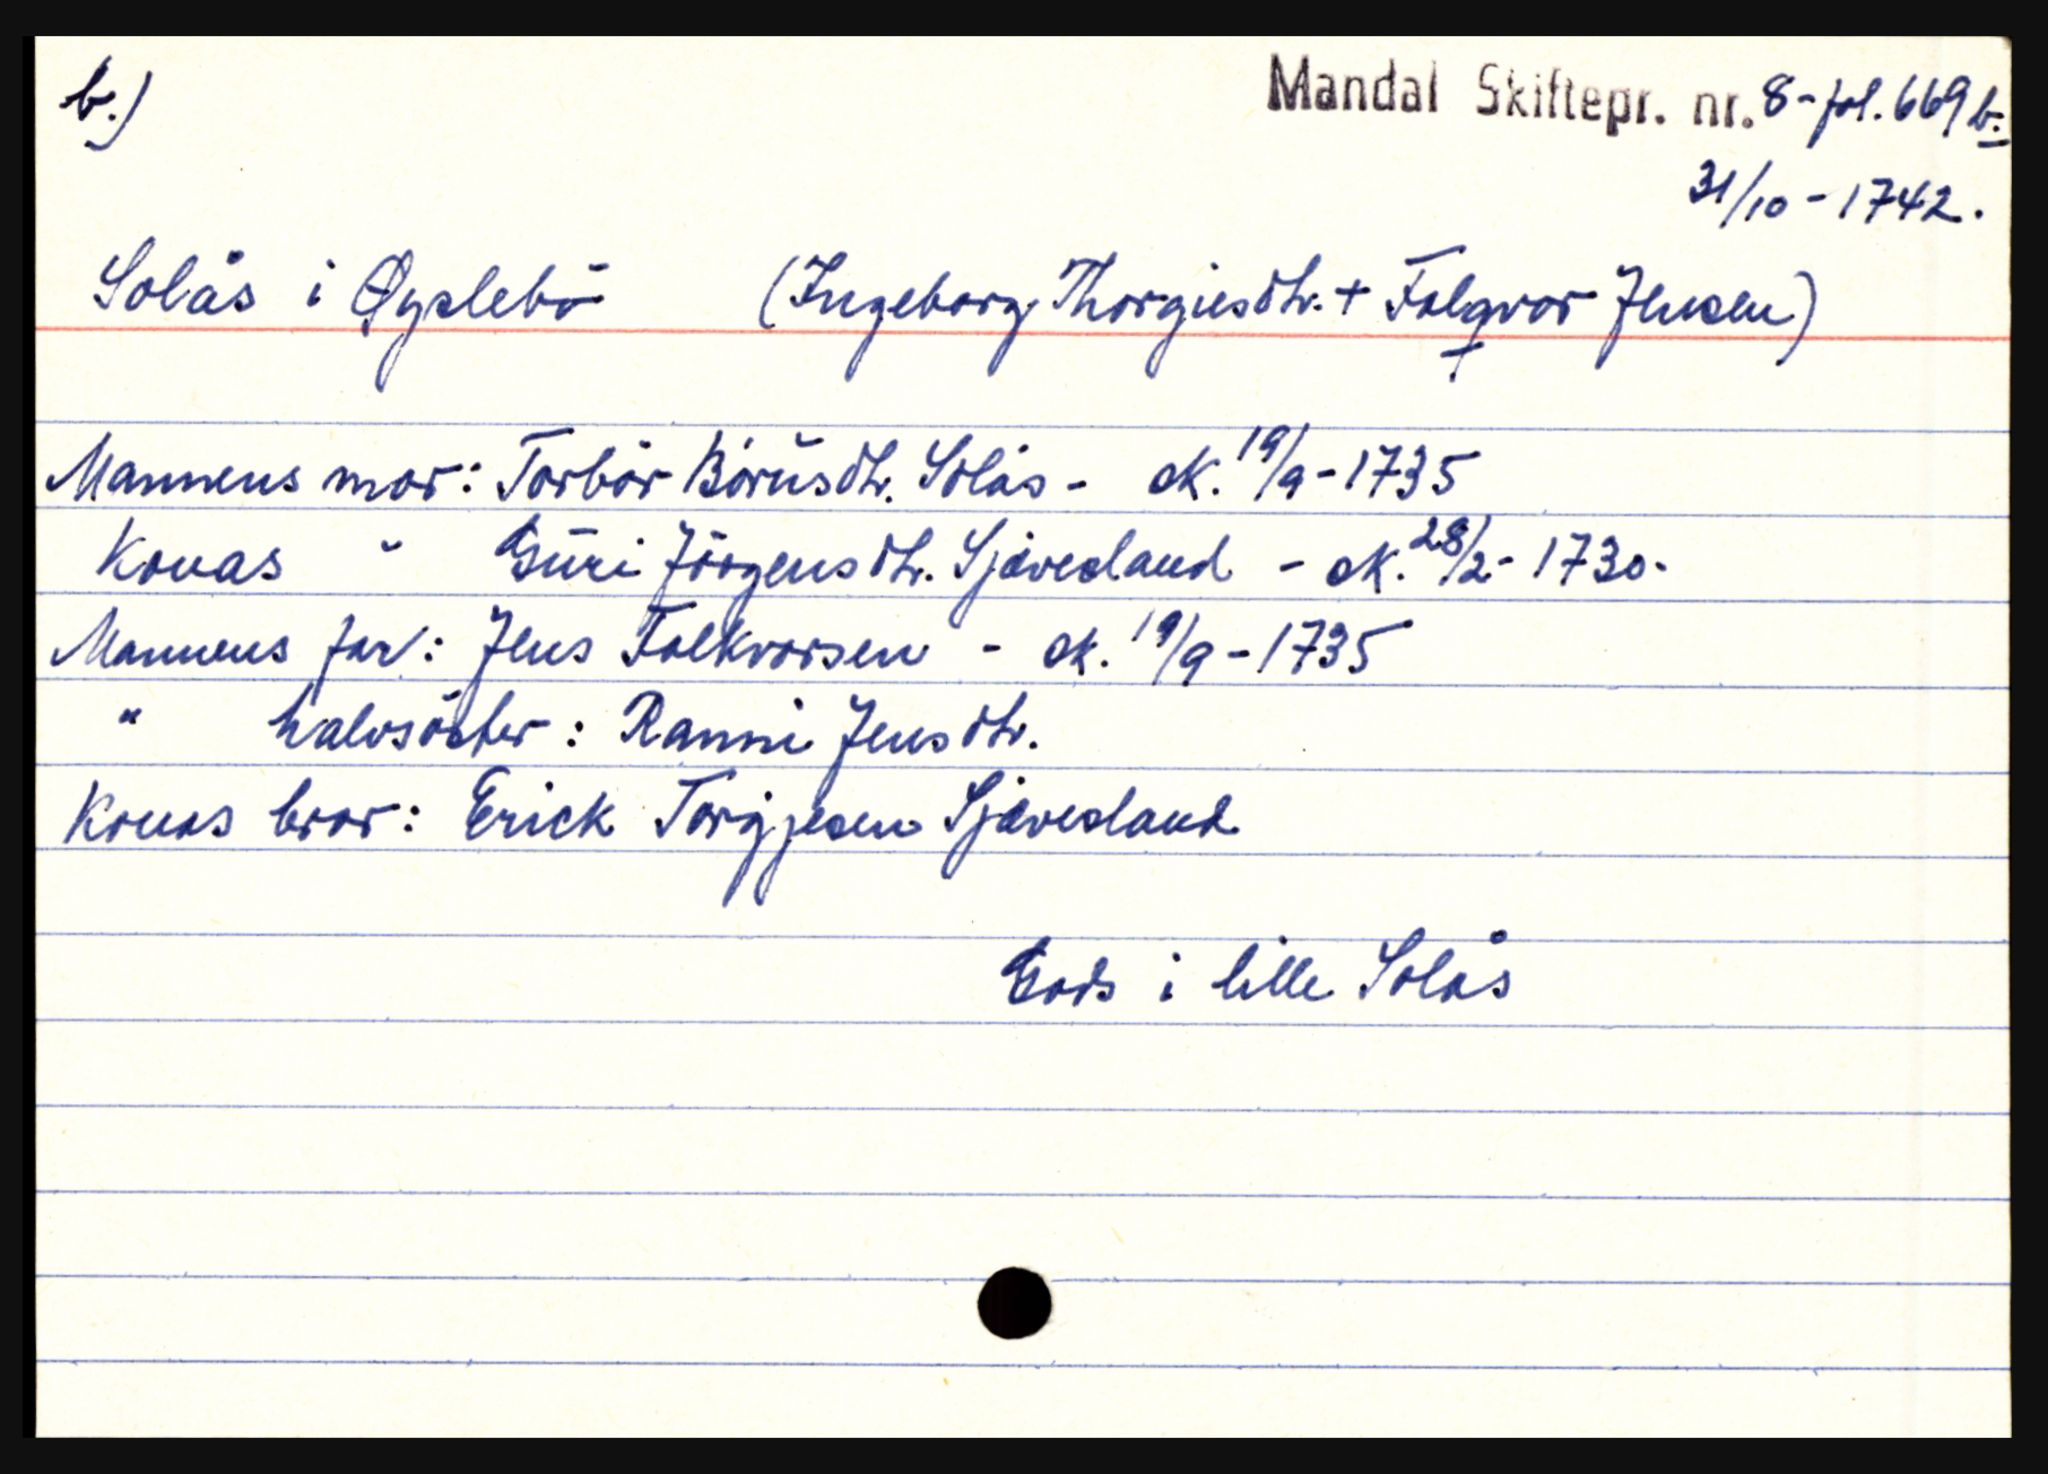 b.)
Mandal Skiftepr. nr. 8 - fol. 669 b.
31/10 - 1742.
Solås i Øyslebö (Ingeborg Thorgiesdtr. + Folqvor Jensen)
+
Mannens mor: Torbör Börüsdtr. Solås - sk. 19/9 - 1735
Konas " Güri Jörgensdtr. Sjævesland - sk. 28/2 - 1730.
Mannens far: Jens Folkvorsen - sk. 19/9 - 1735
" halvsöster: Ranni Jensdtr.
Konas bror: Erick Torgjesen Sjævesland
Gods i lille Solås